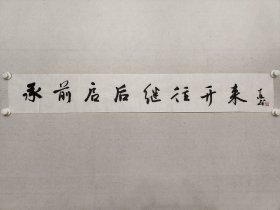 承前启后继往开来